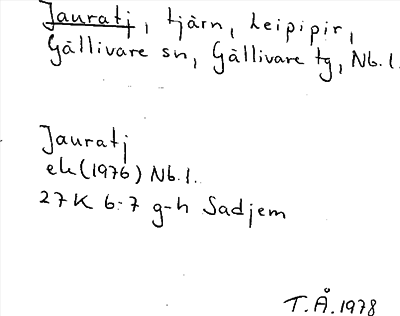 Jauratj, tjärn, Leipipir,
Gällivare sn, Gällivare tg, Nb.l.
Jauratj
ek (1976) Nb.l.
27K 6-7 g-h Sadjem
T.Å. 1978